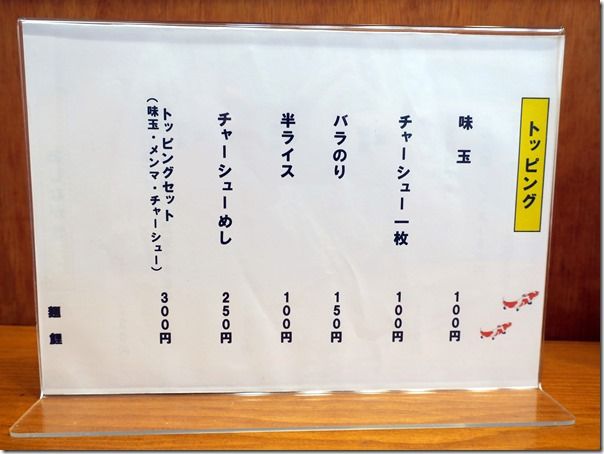 トッピング
味玉 100円
チャーシュー一枚 100円
バラのり 150円
半ライス 100円
チャーシューめし 250円
トッピングセット 300円
（味玉・メンマ・チャーシュー）
麺鯉